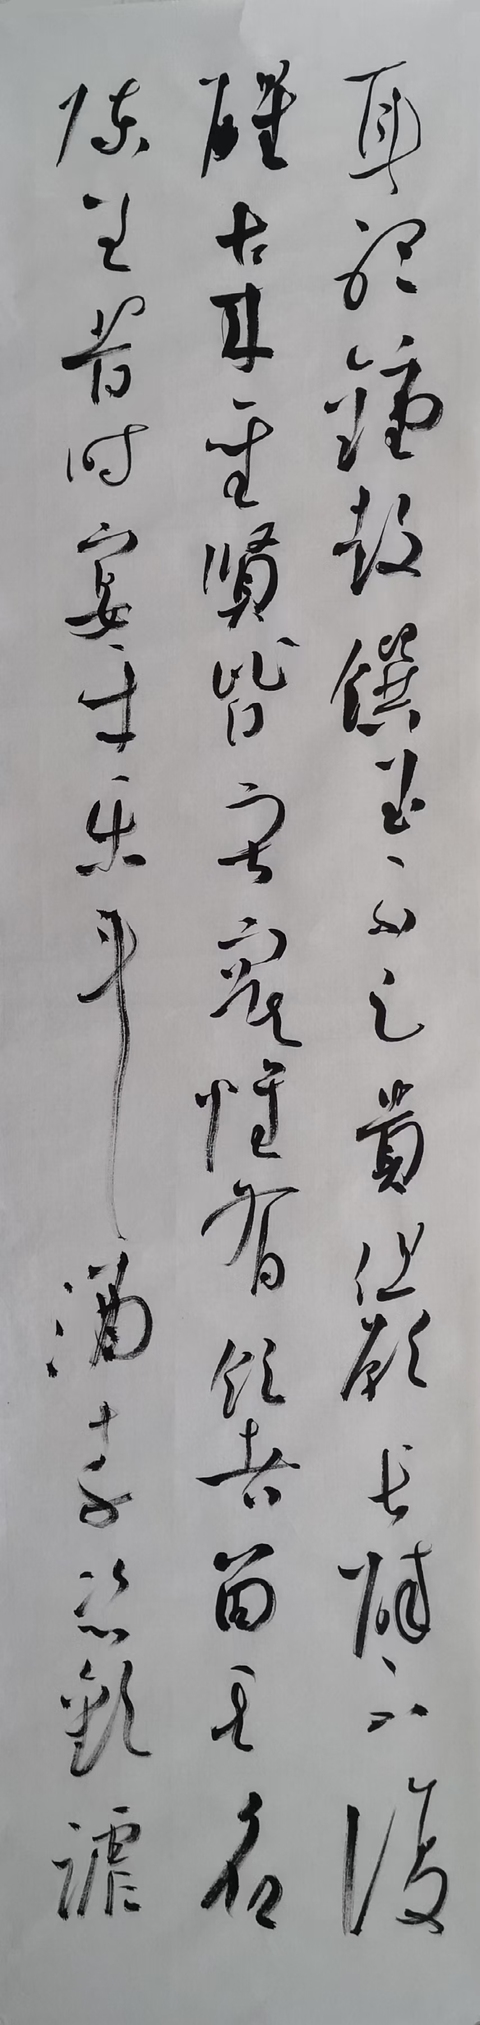 耳聽鐘鼓饌玉不足貴但願長醉不復
醒古來聖賢皆寂寞惟有飲者留其名
陳王昔時宴平樂斗酒十千恣歡謔